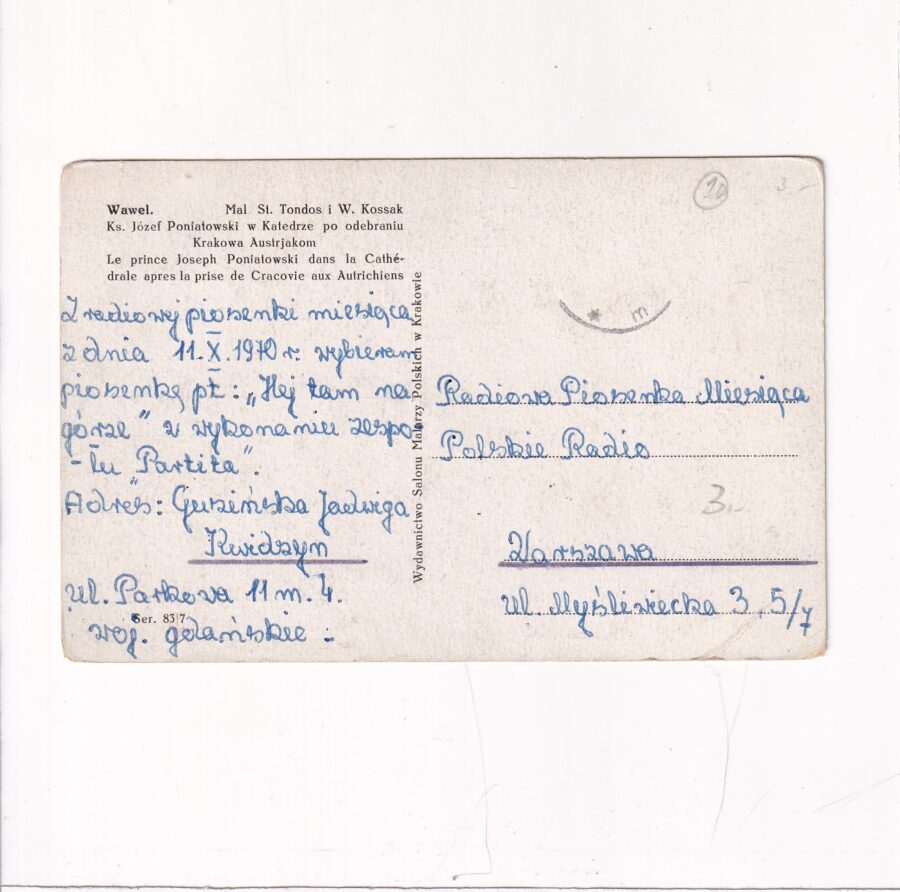 Wawel. Mal St. Tondos i W. Kossak
Ks. Józef Poniatowski w Katedrze po odebraniu
Krakowa Austrjakom
Le prince Joseph Poniatowski dans la Cathé-
drale apres la prise de Cracovie aux Autrichiens
Z radiowej piosenki miesiąca
z dnia 11.X.1970 r. wybieram
piosenkę pt: „Hej tam na
górze" w wykonaniu zespo-
-łu "Partita".
Adres: Guzińska Jadwiga
Kwidzyn
ul. Parkowa 11 m. 4.
Ser. 83|7
woj. gdańskie :
Wydawnictwo Salonu Malarzy Polskich w Krakowie
10
3 -
* m
Radiowa Piosenka Miesiąca
Polskie Radio
3.-
Warszawa
ul. Myśliwiecka 3, 5/7